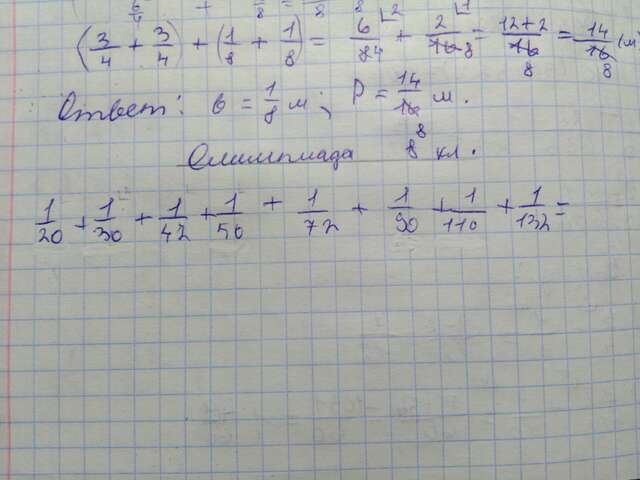 (3/4 + 3/4) + (1/8 + 1/8) = 6/4 + 2/8 = 12+2/8 = 14/8 (м
Ответ: в = 1/8 м; Р = 14/8 м.
Олимпиада 8 кл.
1/20 + 1/30 + 1/42 + 1/50 + 1/72 + 1/90 + 1/110 + 1/132 =